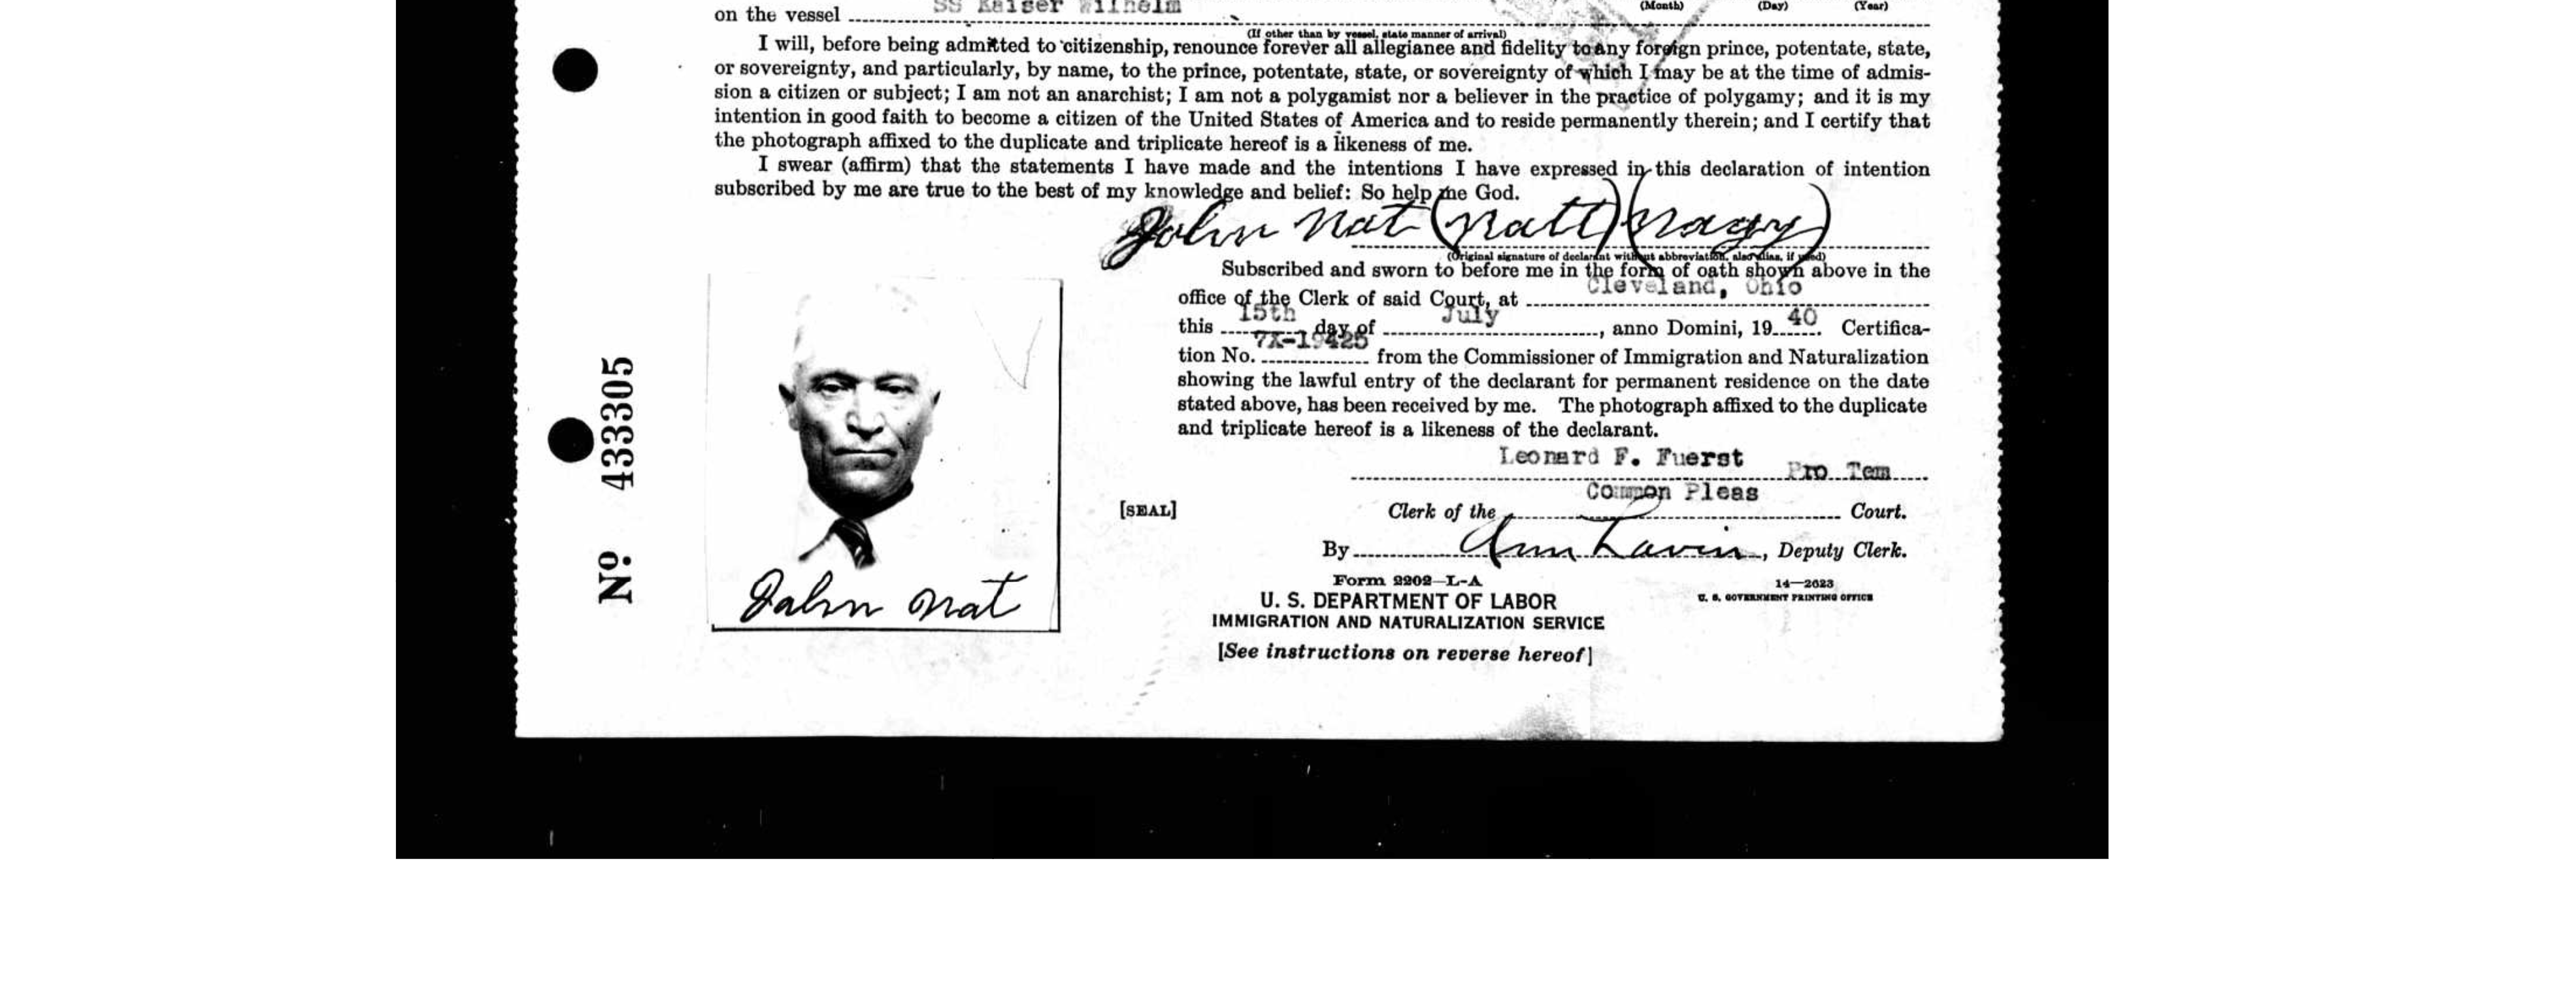 on the vessel SS Kaiser Wilhelm
(Month) (Day) (Year)
(If other than by vessel, state manner of arrival)
I will, before being admitted to citizenship, renounce forever all allegiance and fidelity to any foreign prince, potentate, state,
or sovereignty, and particularly, by name, to the prince, potentate, state, or sovereignty of which I may be at the time of admis-
sion a citizen or subject; I am not an anarchist; I am not a polygamist nor a believer in the practice of polygamy; and it is my
intention in good faith to become a citizen of the United States of America and to reside permanently therein; and I certify that
the photograph affixed to the duplicate and triplicate hereof is a likeness of me.
I swear (affirm) that the statements I have made and the intentions I have expressed in this declaration of intention
subscribed by me are true to the best of my knowledge and belief: So help me God.
John Nat (Natt) (Nagy)
(Original signature of declarant without abbreviation, also alias, if used)
Subscribed and sworn to before me in the form of oath shown above in the
office of the Clerk of said Court, at Cleveland, Ohio
this 15th day of July, anno Domini, 1940. Certifica-
tion No. 7X-19425 from the Commissioner of Immigration and Naturalization
showing the lawful entry of the declarant for permanent residence on the date
stated above, has been received by me. The photograph affixed to the duplicate
and triplicate hereof is a likeness of the declarant.
Leonard F. Fuerst Pro Tem
[SEAL] Clerk of the Common Pleas Court.
By Ann Lavin, Deputy Clerk.
Form 2202—L-A
14—2623
U. S. DEPARTMENT OF LABOR
U. S. GOVERNMENT PRINTING OFFICE
IMMIGRATION AND NATURALIZATION SERVICE
[See instructions on reverse hereof]
John Nat
No. 433305